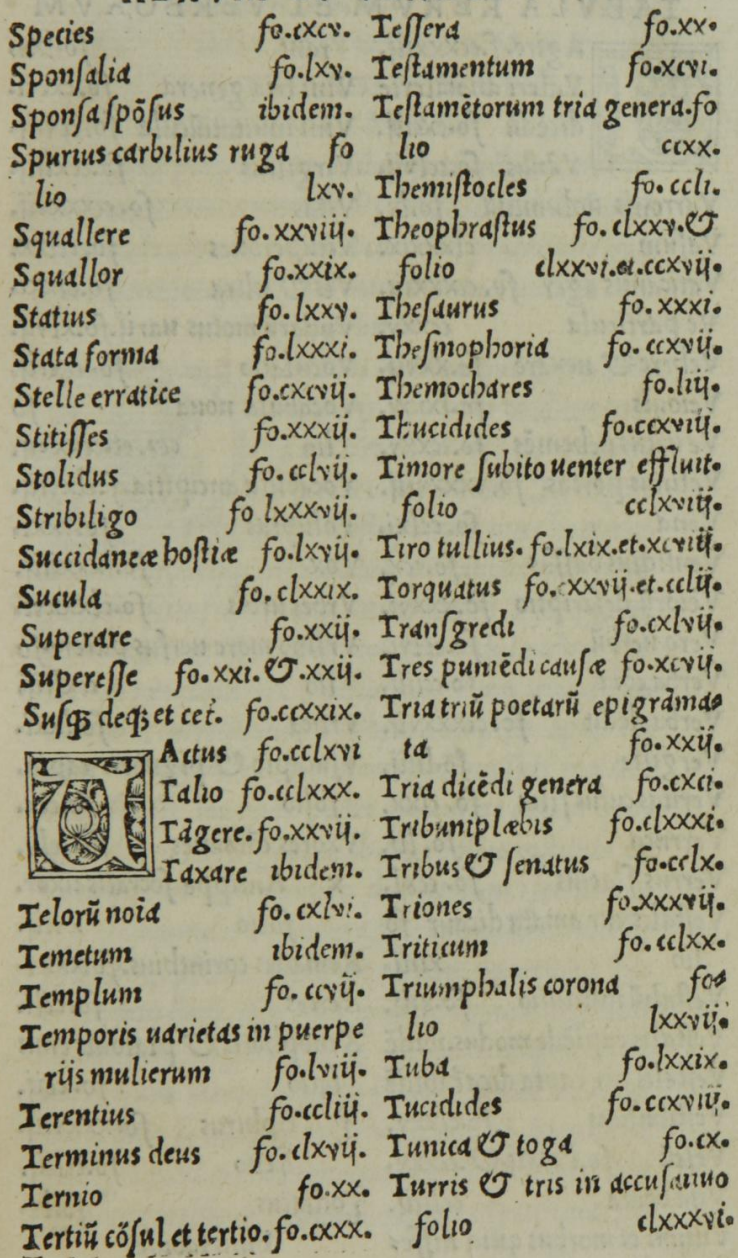 Species fo.cxcv.
Sponſalia fo.lxv.
Sponſa ſpõſus ibidem.
Spurius carbilius ruga fo
lio lxv.
Squallere fo.xxviij.
Squallor fo.xxix.
Statius fo.lxxv.
Stata forma fo.lxxxi.
Stelle erratice fo.cxcvij.
Stitiſſes fo.xxxij.
Stolidus fo.cclvij.
Stribiligo fo lxxxvij.
Succidaneæ hoſtiæ fo.lxvij.
Sucula fo.clxxix.
Superare fo.xxij.
Supereſſe fo.xxi.&.xxij.
Suſqꝫ deqꝫ et cet. fo.ccxxix.
TActus fo.cclxvi
Talio fo.cclxxx.
Tãgere.fo.xxvij.
Taxare ibidem.
Telorũ noĩa fo.cxlvi.
Temetum ibidem.
Templum fo.ccvij.
Temporis uarietas in puerpe
rijs mulierum fo.lviij.
Terentius fo.ccliij.
Terminus deus fo.clxvij.
Ternio fo.xx.
Tertiũ cõſul et tertio.fo.cxxx.
Teſſera fo.xx.
Teſtamentum fo.xcvi.
Teſtamẽtorum tria genera.fo
lio ccxx.
Themiſtocles fo.ccli.
Theophraſtus fo.clxxv.&
folio clxxvi.et.ccxvij.
Theſaurus fo.xxxi.
Theſmophoria fo.ccxvij.
Themochares fo.liij.
Thucidides fo.ccxviij.
Timore ſubito uenter effluit.
folio cclxviij.
Tiro tullius.fo.lxix.et.xcviij.
Torquatus et.cclij.
Tranſgredi fo.cxlvij.
Tres puniẽdi cauſæ fo.xcvij.
Tria triũ poetarũ epigrãma
ta fo.xxij.
Tria dicẽdi genera fo.cxci.
Tribuni plæbis fo.clxxxi.
Tribus & ſenatus fo.cclx.
Triones fo.xxxvij.
Triticum fo.cclxx.
Triumphalis corona fo
lio lxxvij.
Tuba fo.lxxix.
Tucidides fo.ccxviij.
Tunica & toga fo.cx.
Turris & tris in accuſatiuo
folio clxxxvi.